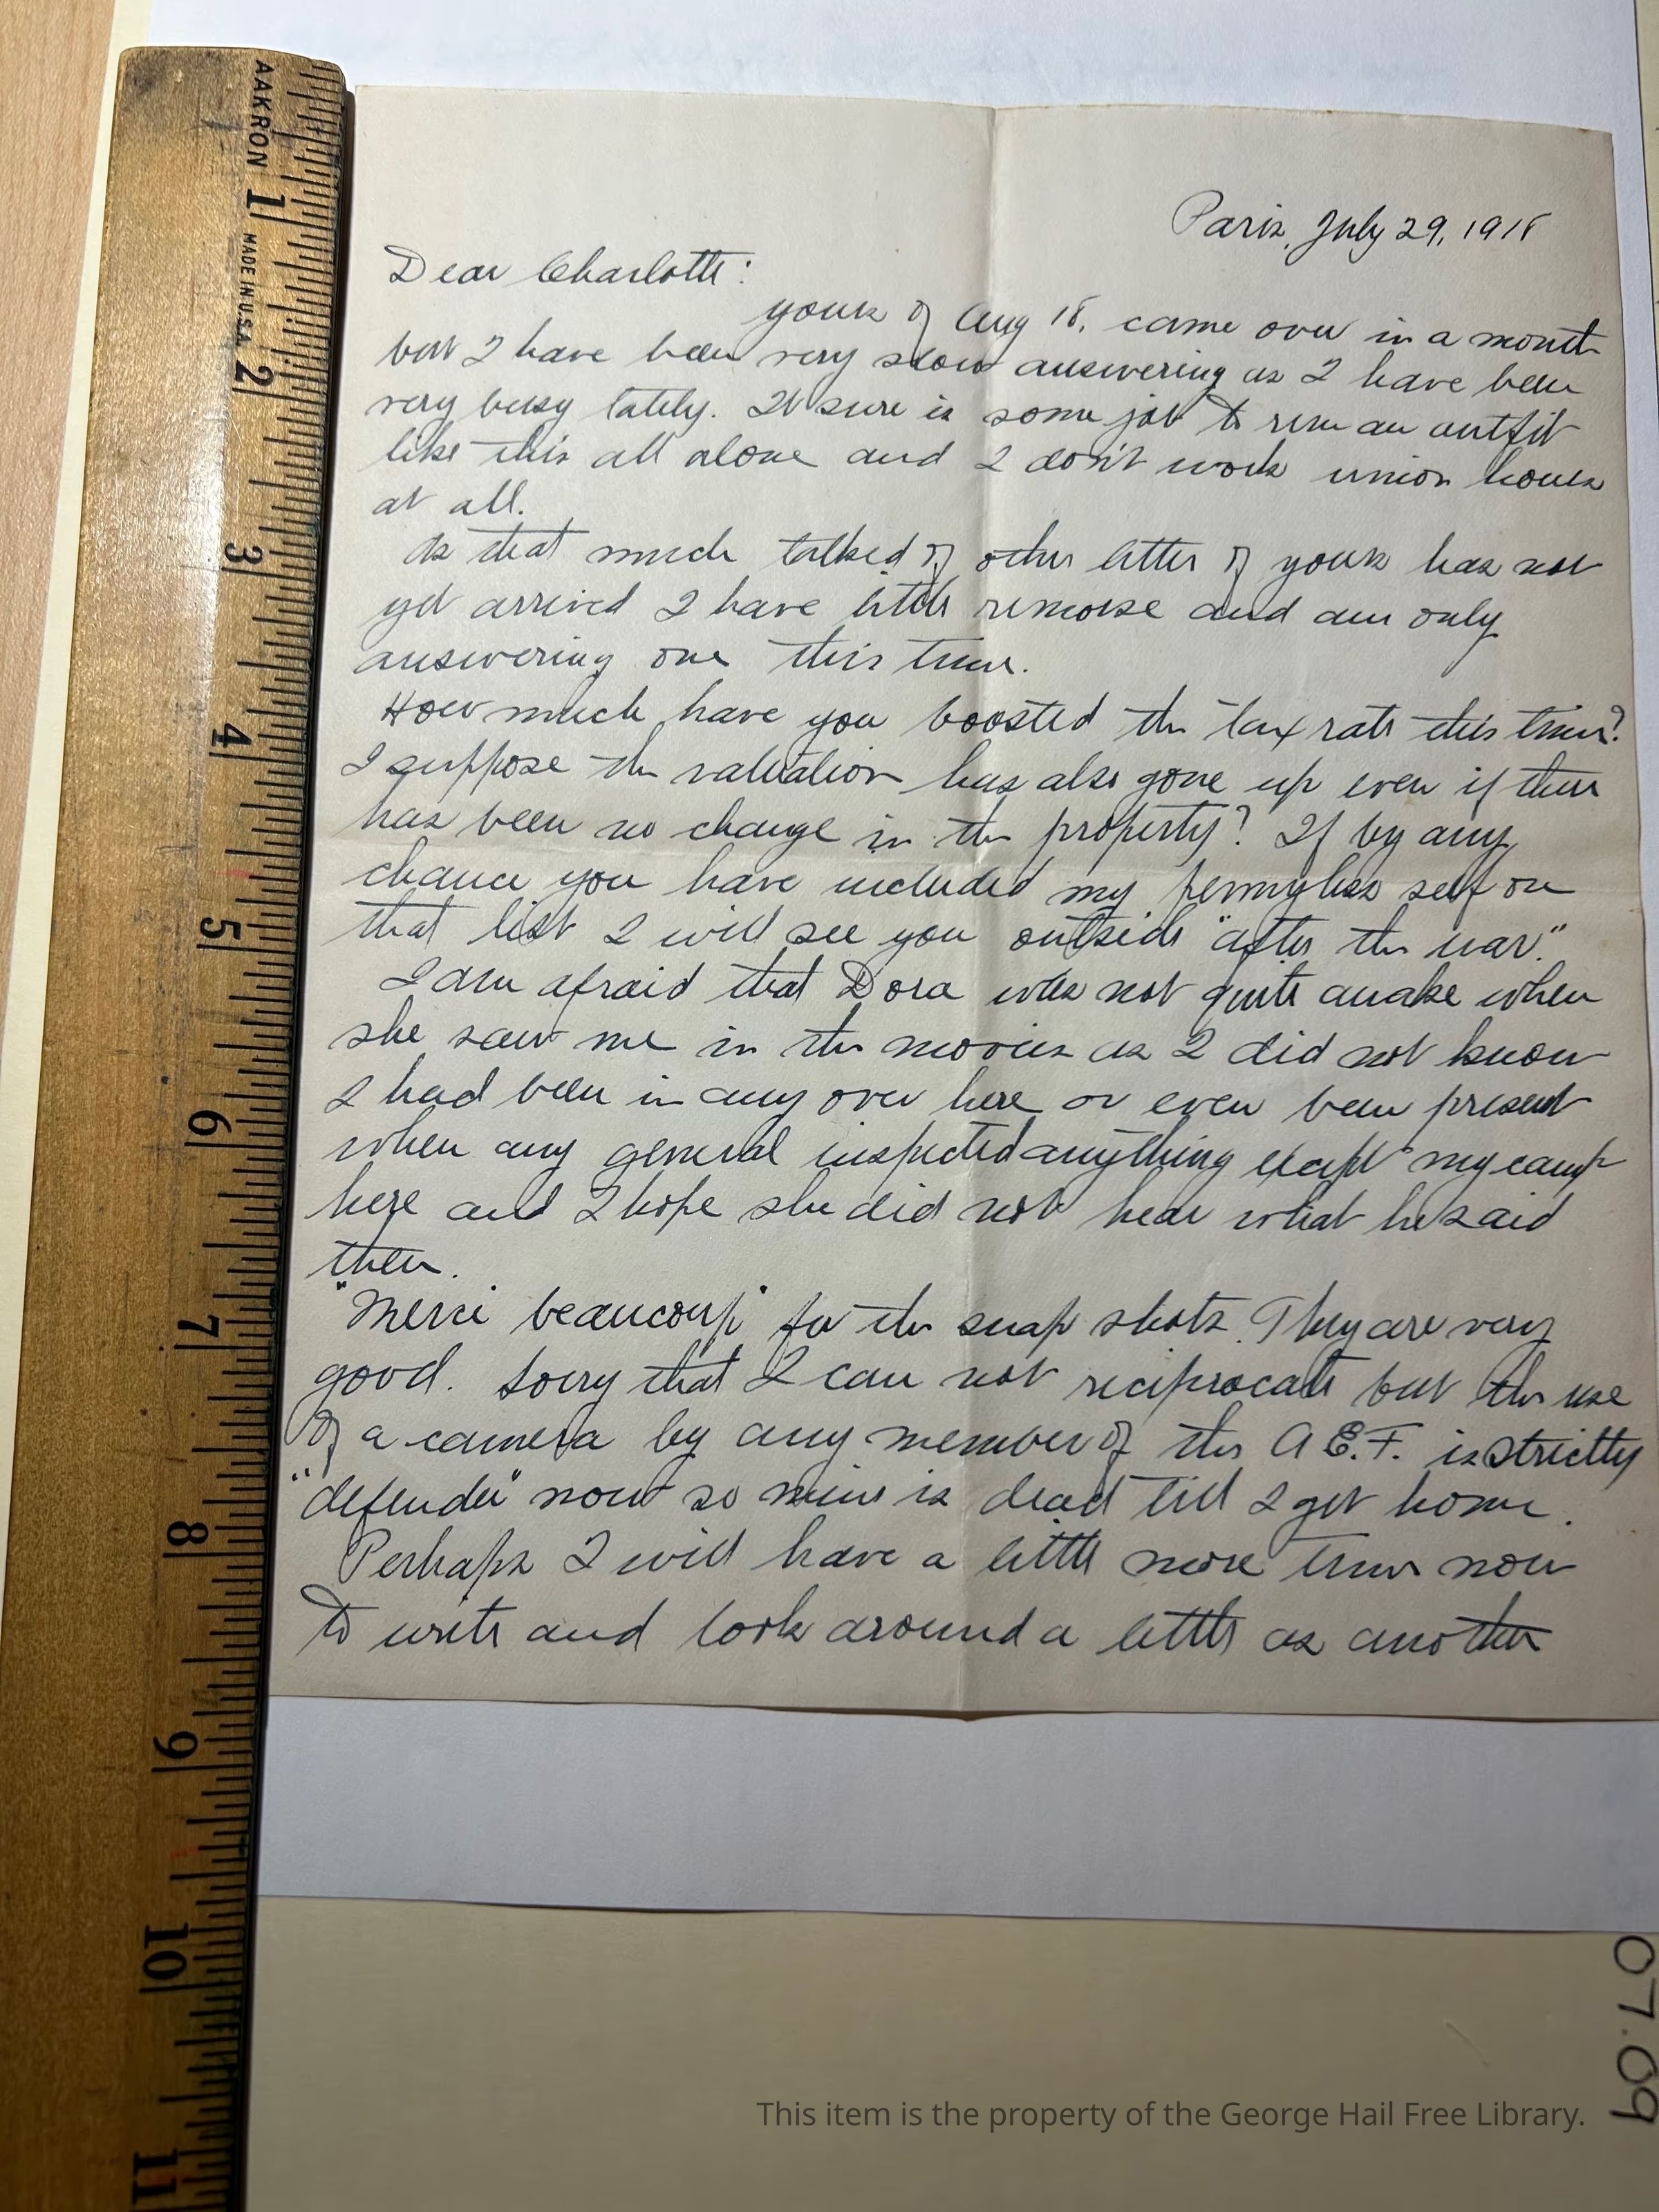 Paris, July 29, 1918
Dear Charlotte:
yours of Aug 18, came over in a month
but I have been very slow answering as I have been
very busy lately. It sure is some job to run an outfit
like this all alone and I don't work union hours
at all.
As that much talked of other letter of yours has not
yet arrived I have little remorse and am only
answering one this time.
How much have you boosted the tax rate this time?
I suppose the valuation has also gone up even if there
has been no change in the property? If by any
chance you have included my pennyless self on
that list I will see you outside "after the war."
I am afraid that Dora was not quite awake when
she saw me in the movies as I did not know
I had been in any over here or even been present
when any general inspected anything except my camp
here and I hope she did not hear what he said
then.
"Merci beaucoup" for the snap shots. They are very
good. Sorry that I can not reciprocate but the use
of a camera by any member of the A.E.F. is strictly
"defendu" now so mine is dead till I get home.
Perhaps I will have a little more time now
to write and look around a little as another
AAKRON
MADE IN U.S.A.
1
2
3
4
5
6
7
8
9
10
11
07.09
This item is the property of the George Hail Free Library.